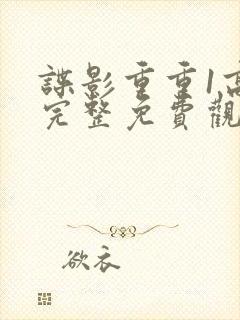 諜影重重1高
完整免費觀
欲衣